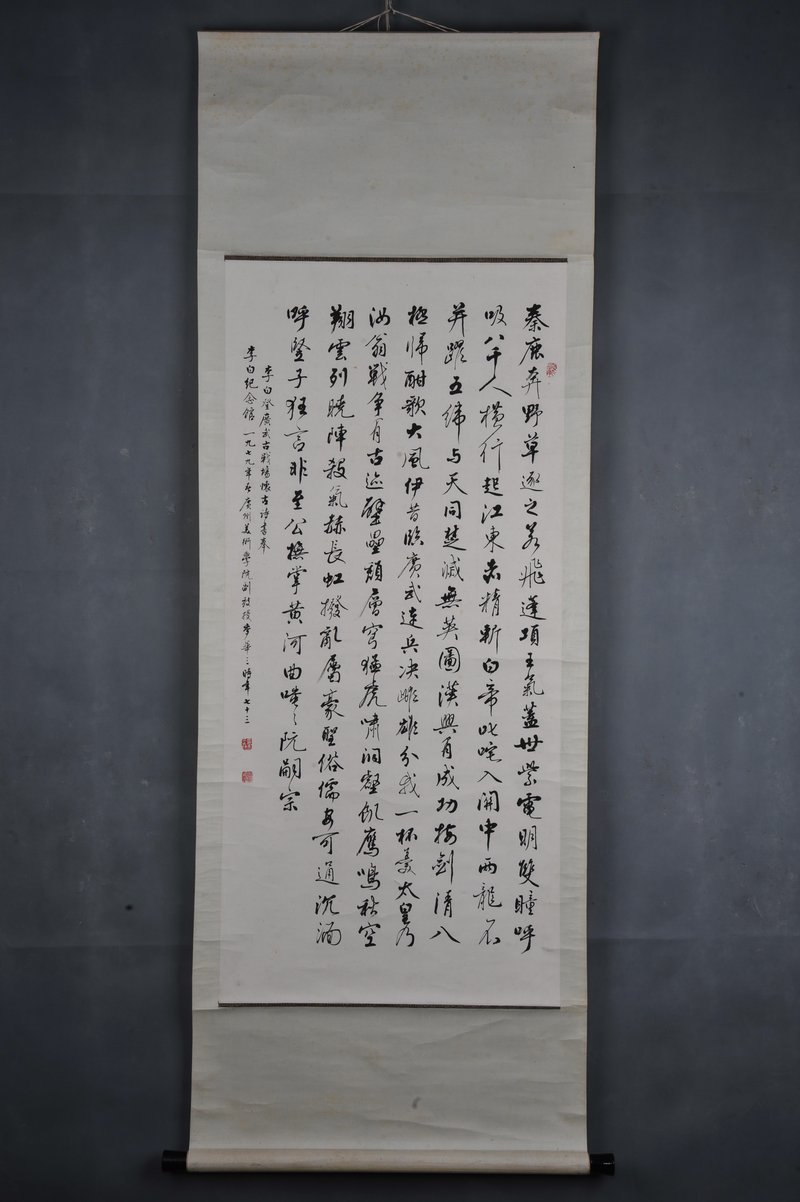 秦鹿奔野草逐之若飛蓬項王氣蓋世紫電明雙瞳呼
吸八千人橫行起江東赤精斬白帝叱咤入關中兩龍不
并躍五緯与天同楚滅無英圖漢興有成功按劍清八
極歸酣歌大風伊昔臨廣武連兵決雌雄分我一杯羹太皇乃
汝翁戰爭有古迹壁壘頹層穹猛虎嘯洞壑飢鷹鳴秋空
翔雲列曉陣殺氣赫長虹撥亂屬豪聖俗儒安可通沉湎
呼豎子狂言非至公撫掌黃河曲嗤嗤阮嗣宗
李白登廣武古戰場懷古詩書奉
李白紀念館一九七九年春廣州美術學院副教授麥華三時年七十三